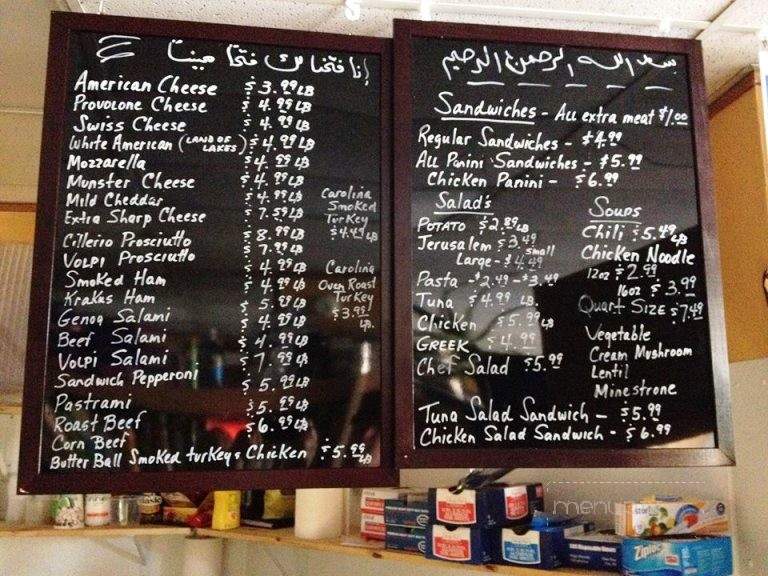 إنا فتحنا لك فتحا مبينا
American Cheese $3.99 LB
Provolone Cheese $4.99 LB
Swiss Cheese $4.99 LB
White American (LAND OF LAKES) $4.99 LB
Mozzarella $4.99 LB
Munster Cheese $4.99 LB
Mild Cheddar $4.99 LB
Extra Sharp Cheese $7.59 LB
Cilleiro Prosciutto $8.99 LB
VOLPI Prosciutto $7.99 LB
Smoked Ham $4.99 LB
Krakas Ham $4.99 LB
Genoa Salami $5.99 LB
Beef Salami $4.99 LB
VOLPI Salami $4.99 LB
Sandwich Pepperoni $7.99 LB
Pastrami $5.99 LB
Roast Beef $5.99 LB
Corn Beef $6.99 LB
Butter Ball Smoked turkey & Chicken $5.99 LB
Carolina
Smoked
Turkey
$4.49 LB
Carolina
Oven Roast
Turkey
$3.99
LB.
بسم الله الرحمن الرحيم
Sandwiches - All extra meat $1.00
Regular Sandwiches - $4.99
All Panini Sandwiches - $5.99
Chicken Panini - $6.99
Salad's
POTATO $2.89 LB
Jerusalem $3.49 small
Large - $4.49
Pasta - $2.49 - $3.49
Tuna $4.99 LB.
Chicken $5.99 LB
GREEK $4.99
Chef Salad $5.99
Soups
Chili $5.49 LB
Chicken Noodle
12oz $2.99
16oz $3.99
Quart Size $7.49
Vegetable
Cream Mushroom
Lentil
Minestrone
Tuna Salad Sandwich - $5.99
Chicken Salad Sandwich - $6.99
Ziploc